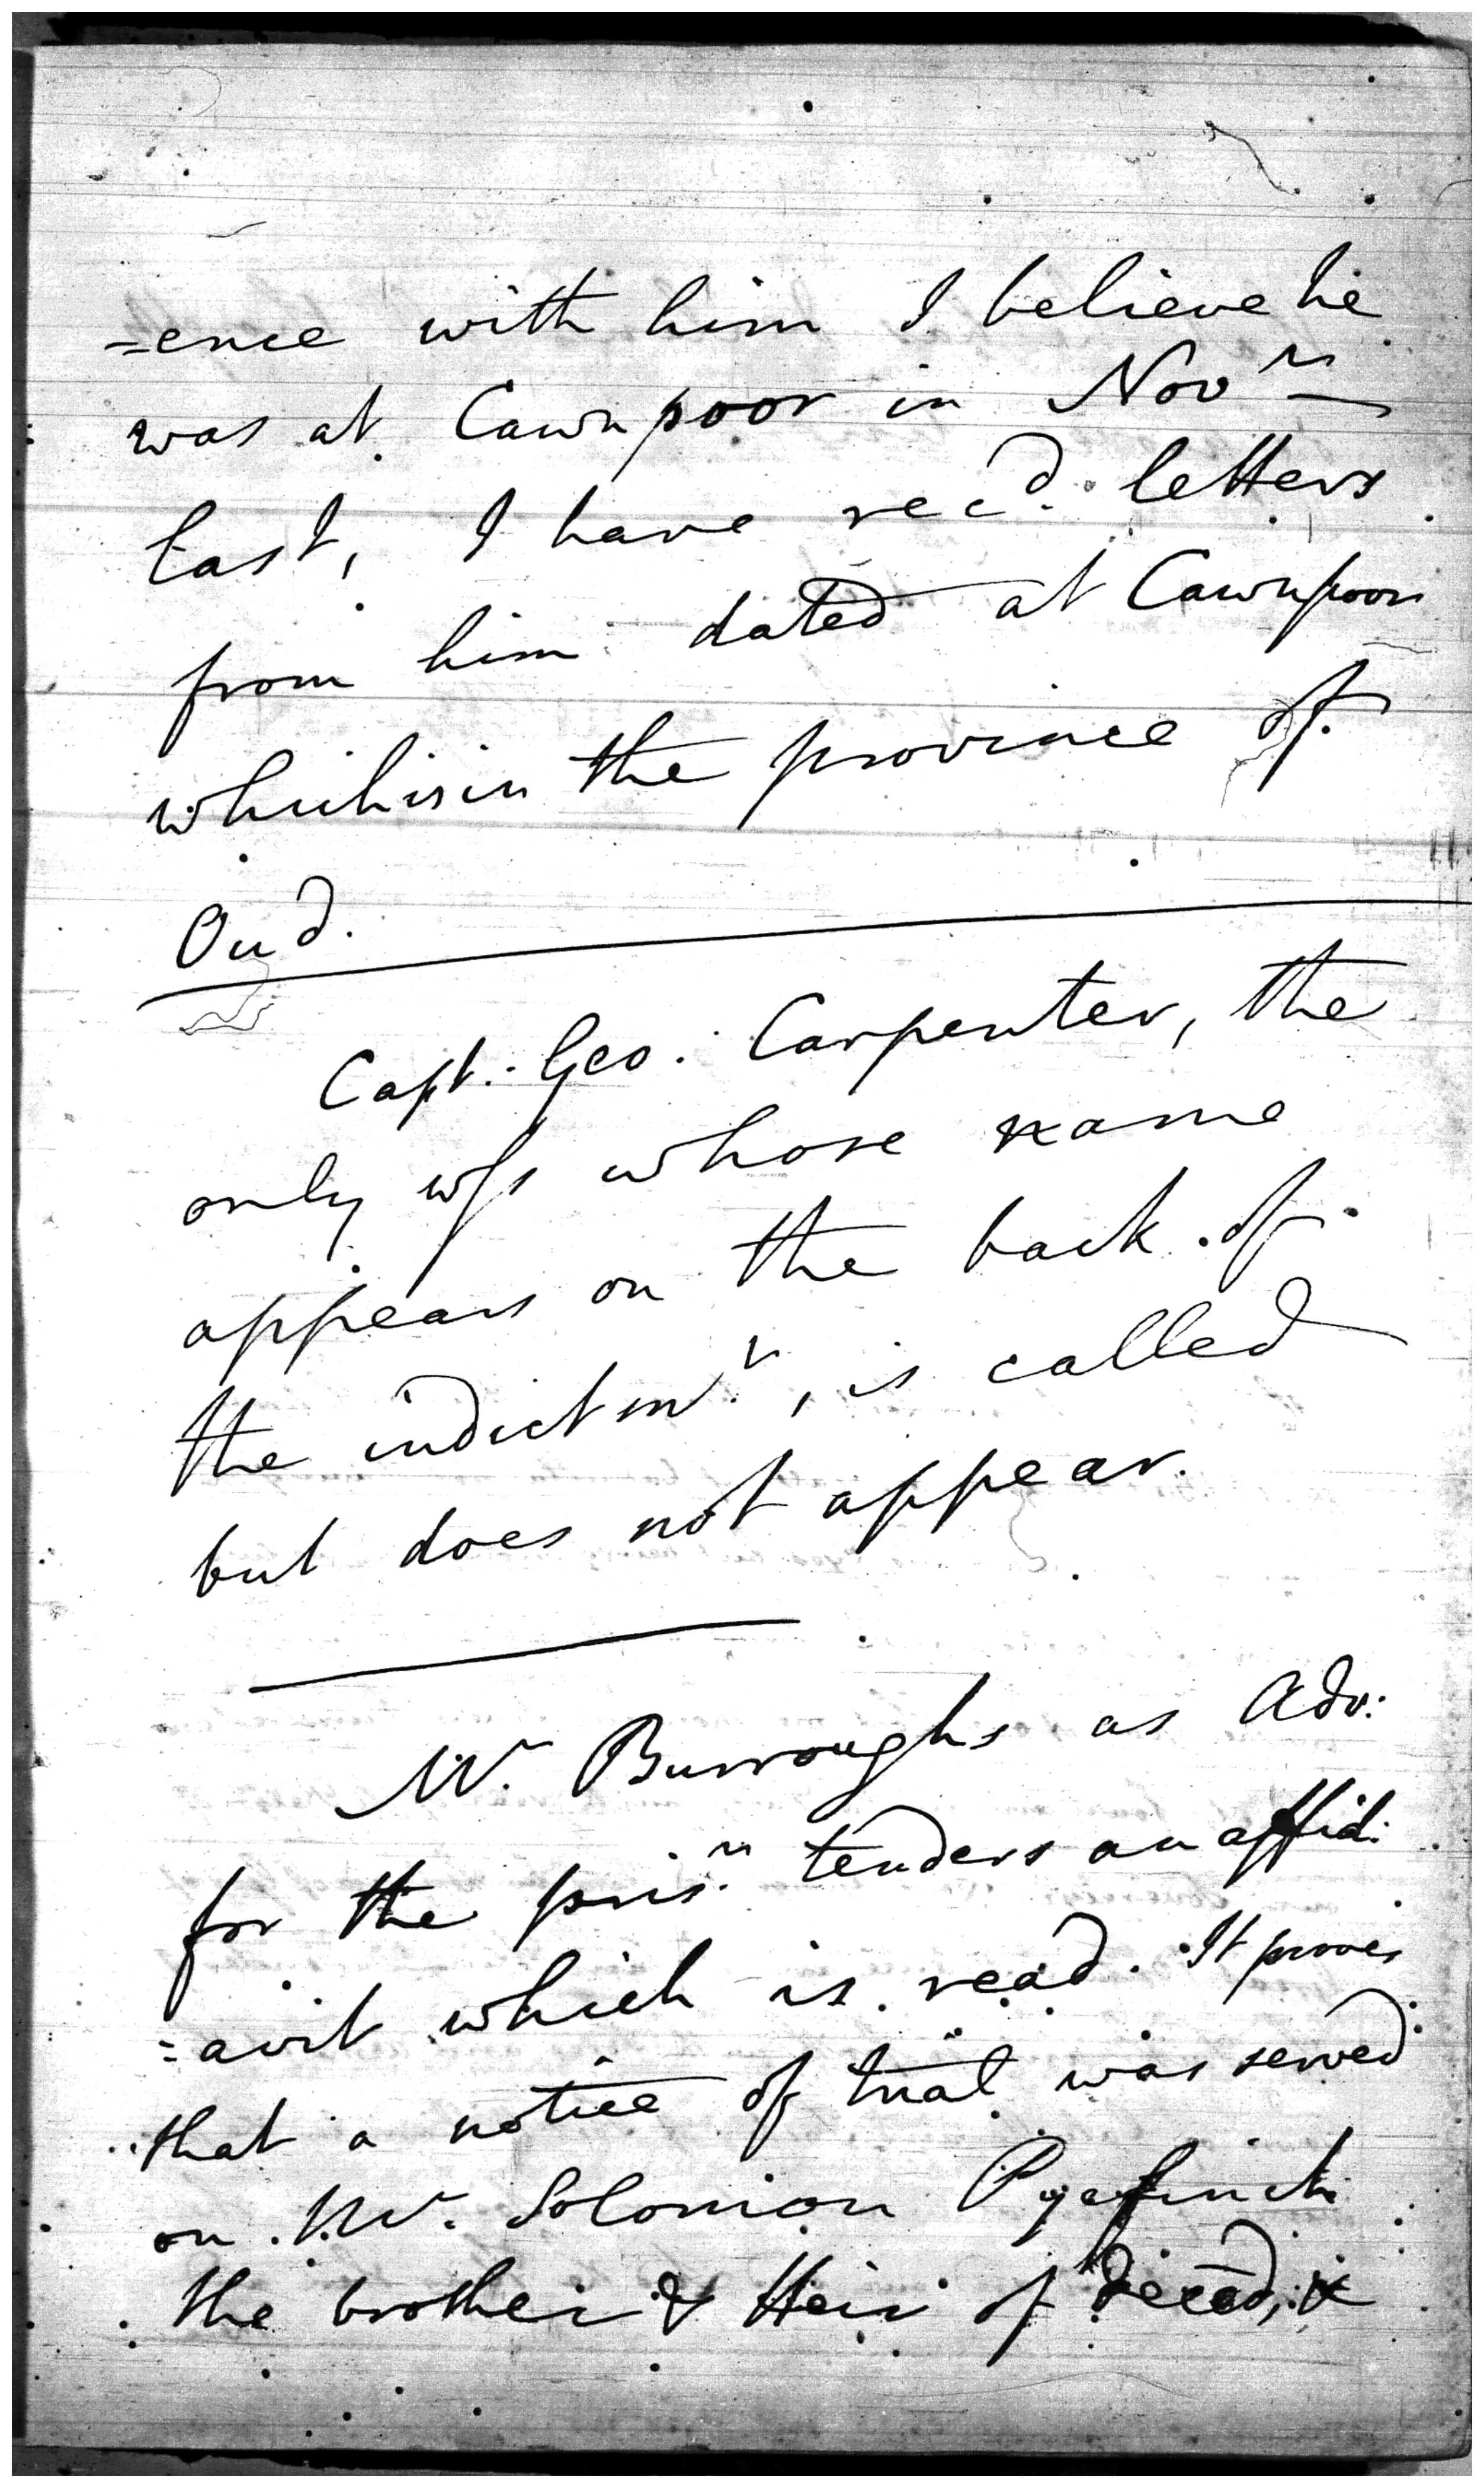 =ence with him I believe he
was at Cawnpoor in Novr
last, I have recd. letters
from him dated at Cawnpoor
which is in the province of
Oud.
Capt. Geo. Carpenter, the
only wſs whose name
appears on the back of
the indictmt., is called
but does not appear.
Mr. Burroughs as Adv:
for the prisr. tenders an affid:
=avit which is read. It proves
that a notice of trial was served
on Mr. Solomon
the brother & Heir of decēd, &